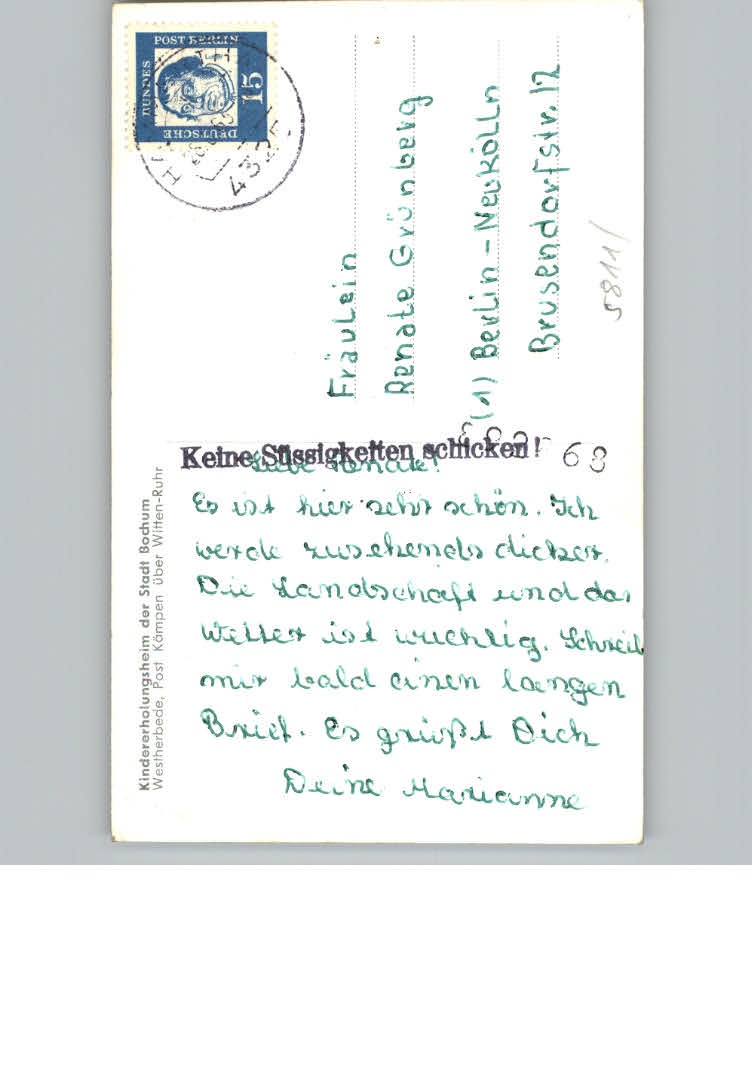 DEUTSCHE
BUNDES
POST BERLIN
15
4325
Fräulein
Renate Grünberg
(1) Berlin-Neukölln
Brusendorfstr. 12
58111/
Keine Süssigkeiten schicken!
68
Liebe Renate!
Es ist hier sehr schön. Ich
werde zusehends dicker.
Die Landschaft und das
Wetter ist wuchtig. Schreib
mir bald einen langen
Brief. Es grüßt Dich
Deine Marianne
Kindererholungsheim der Stadt Bochum
Westherbede, Post Kämpen über Witten-Ruhr